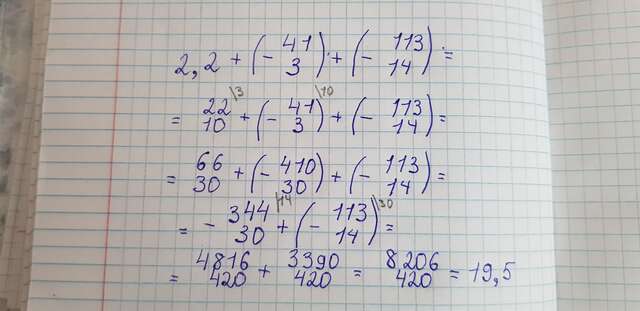 2,2 + (- 41/3) + (- 113/14) =
= 22/10 \3 + (- 41/3 \10) + (- 113/14) =
= 66/30 + (- 410/30) + (- 113/14) =
= - 344/30 \14 + (- 113/14 \30) =
= 4816/420 + 3390/420 = 8206/420 = 19,5